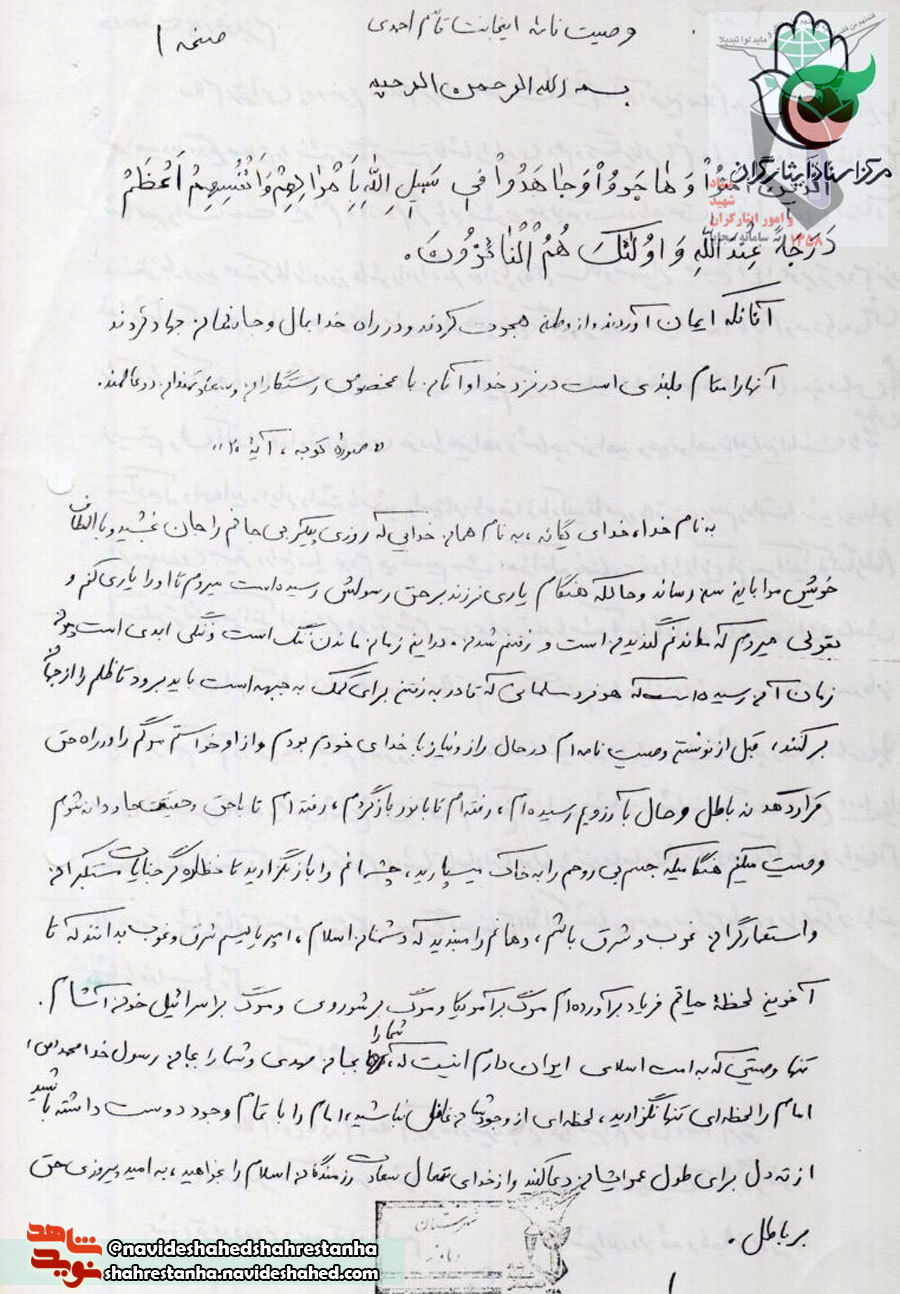 وصیت نامه اینجانب قائم احمدی
صفحه ۱
بسم الله الرحمن الرحیم
مرکز اسناد ایثارگران
اَلَّذینَ آمَنُواْ وَ هاجَروُاْ وَ جاهَدُواْ فی سَبیلِ اللهِ بِاَمْوالِهِمْ وَاَنْفُسِهِمْ اَعْظَمُ
شهید
و امور ایثارگران
دَرَجَةً عِنْدَ اللهِ وَ اوُلئکَ هُمُ الْفائزُونَ.
۱۳۵۸
آنانکه ایمان آوردند و از وطن هجرت کردند و در راه خدا بمال و جانشان جهاد کردند
آنها را مقام بلندی است در نزد خدا و آنان با مخصوص رستگاران و سعادتمندان دو عالمند.
«صورهٔ توبه، آیهٔ ۲۰»
به نام خدا، خدای یگانه، به نام همان خدایی که روزی پیکر بی جانم را جان بخشید و با الطاف
خویش مرا باین سن رساند و حال که هنگام یاری فرزند بر حق رسولش رسیده است میروم تا او را یاری کنم و
بقولی میروم که ماندنم گندیدن است و رفتنم شدن. در این زمان ماندن ننگ است و ننگی ابدی است چون
زمان آن رسیده است که هر فرد مسلمانی که قادر به رفتن برای کمک به جبهه است باید برود تا ظلم را از جا
بر کنند، قبل از نوشتن وصیت نامه ام در حال راز و نیاز با خدای خودم بودم و از او خواستم مرگم را در راه حق
قرار دهد نه باطل و حال بآرزویم رسیده ام، رفته ام تا با نور بازگردم، رفته ام تا با حق و حقیقت جاودانه شوم
وصیت میکنم هنگامیکه جسم بی روحم را به خاک میسپارید، چشمانم را باز بگذارید تا نظاره گر جنایات مستکبران
و استعمارگران غرب و شرق باشم، دهانم را مبندید که دشمنان اسلام، امپریالیسم شرق و غرب بدانند که تا
آخرین لحظهٔ حیاتم فریاد بر آورده ام مرگ بر آمریکا و مرگ بر شوروی و مرگ بر اسرائیل خون آشام.
تنها وصیتی که به امت اسلامی ایران دارم اینست که، شما را بجان مهدی و شما را بجان رسول خدا محمد (ص)،
امام را لحظه ای تنها نگذارید، لحظه ای از وجودشان غافل نباشید، امام را با تمام وجود دوست داشته باشید
از ته دل برای طول عمر ایشان دعا کنید و از خدای متعال سعادت رزمندگان اسلام را بخواهید، به امید پیروزی حق
بر باطل.
۱
شاهد
نوید
@navideshahedshahrestanha
shahrestanha.navideshahed.com